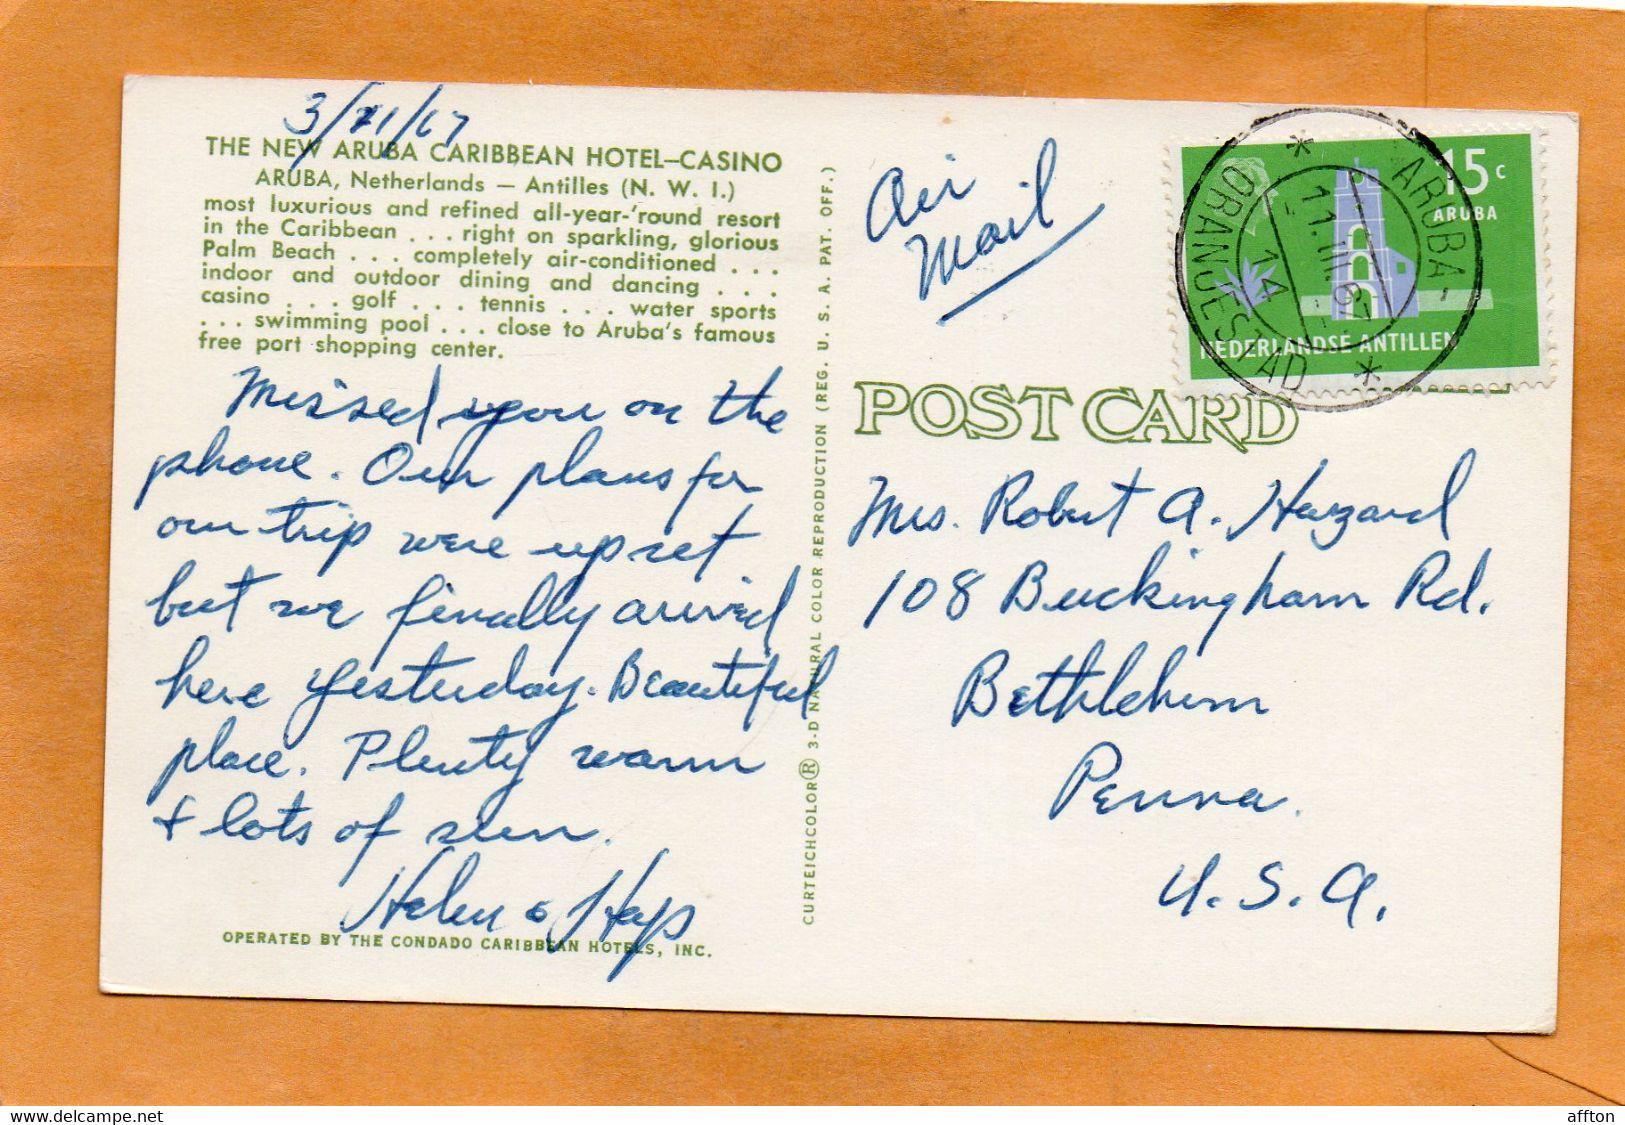 3/11/67
THE NEW ARUBA CARIBBEAN HOTEL—CASINO
ARUBA, Netherlands — Antilles (N. W. I.)
most luxurious and refined all-year-'round resort
in the Caribbean . . . right on sparkling, glorious
Palm Beach . . . completely air-conditioned . . .
indoor and outdoor dining and dancing . . .
casino . . . golf . . . tennis . . . water sports
. . . swimming pool . . . close to Aruba's famous
free port shopping center.
Missed you on the
phone. Our plans for
our trip were upset
but we finally arrived
here yesterday. Beautiful
place. Plenty warm
& lots of sun.
Helen & Hap
OPERATED BY THE CONDADO CARIBBEAN HOTELS, INC.
CURTEICHCOLOR® 3-D NATURAL COLOR REPRODUCTION (REG. U. S. A. PAT. OFF.)
Air
Mail
15 c
ARUBA
NEDERLANDSE ANTILLEN
ARUBA-
ORANJESTAD
11.III.67
14
POST CARD
Mrs. Robert A. Hazard
108 Buckingham Rd.
Bethlehem
Penna.
U.S.A.
affton